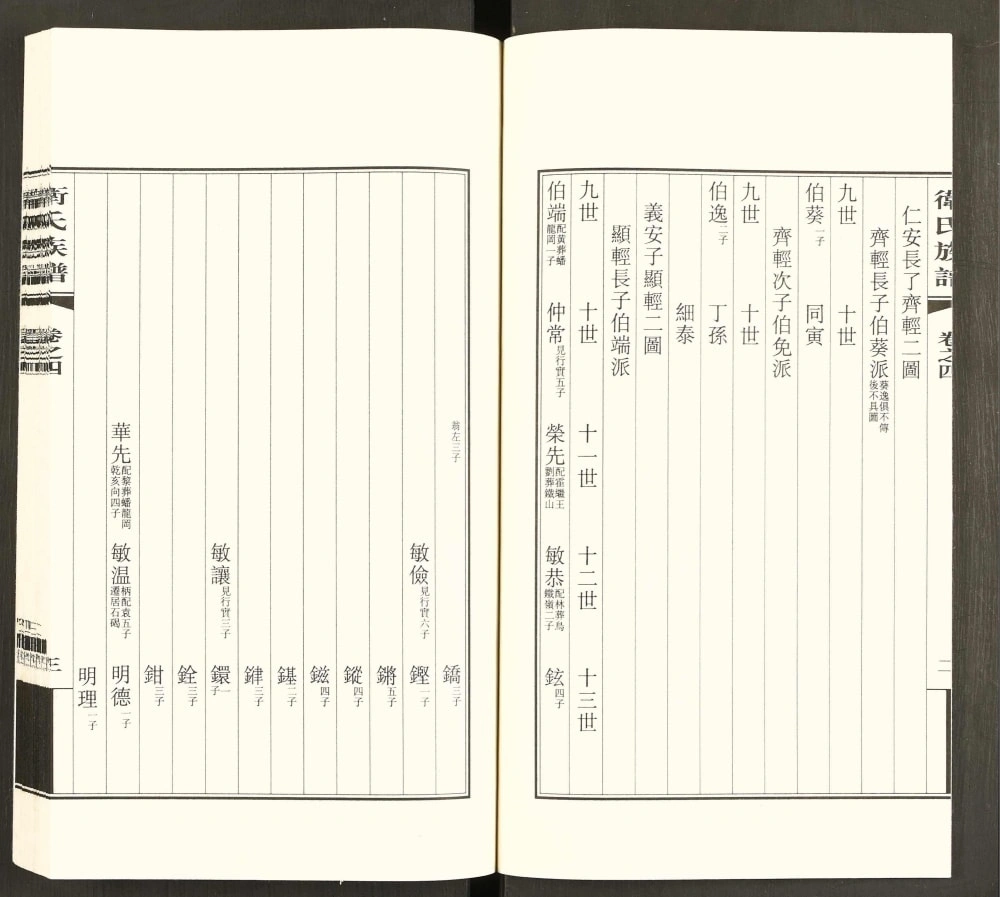 衛氏族譜 卷之四 二
仁安長了齊輕二圖
齊輕長子伯葵派 葵逸俱不傳後不具圖
九世 十世
伯葵 一子 同寅
齊輕次子伯免派
九世 十世
伯逸 二子 丁孫
細泰
義安子顯輕二圖
顯輕長子伯端派
九世 十世 十一世 十二世 十三世
伯端 配黃葬蟠龍岡一子 仲常 見行實五子 榮先 配霍繼王劉葬鐵山 敏恭 配林葬烏鐵嶺二子 鉉 四子
翁左三子 鐈 三子
敏儉 見行實六子 鏗 一子
鏘 五子
鏦 四子
鎡 四子
鎡 二子
銉 三子
敏讓 見行實三子 鐶 一子
銓 三子
鉗 三子
華先 配黎葬蟠龍岡乾亥向四子 敏温 柄配袁五子遷居石碣 明德 一子
明理 一子
衛氏族譜 卷之四 三